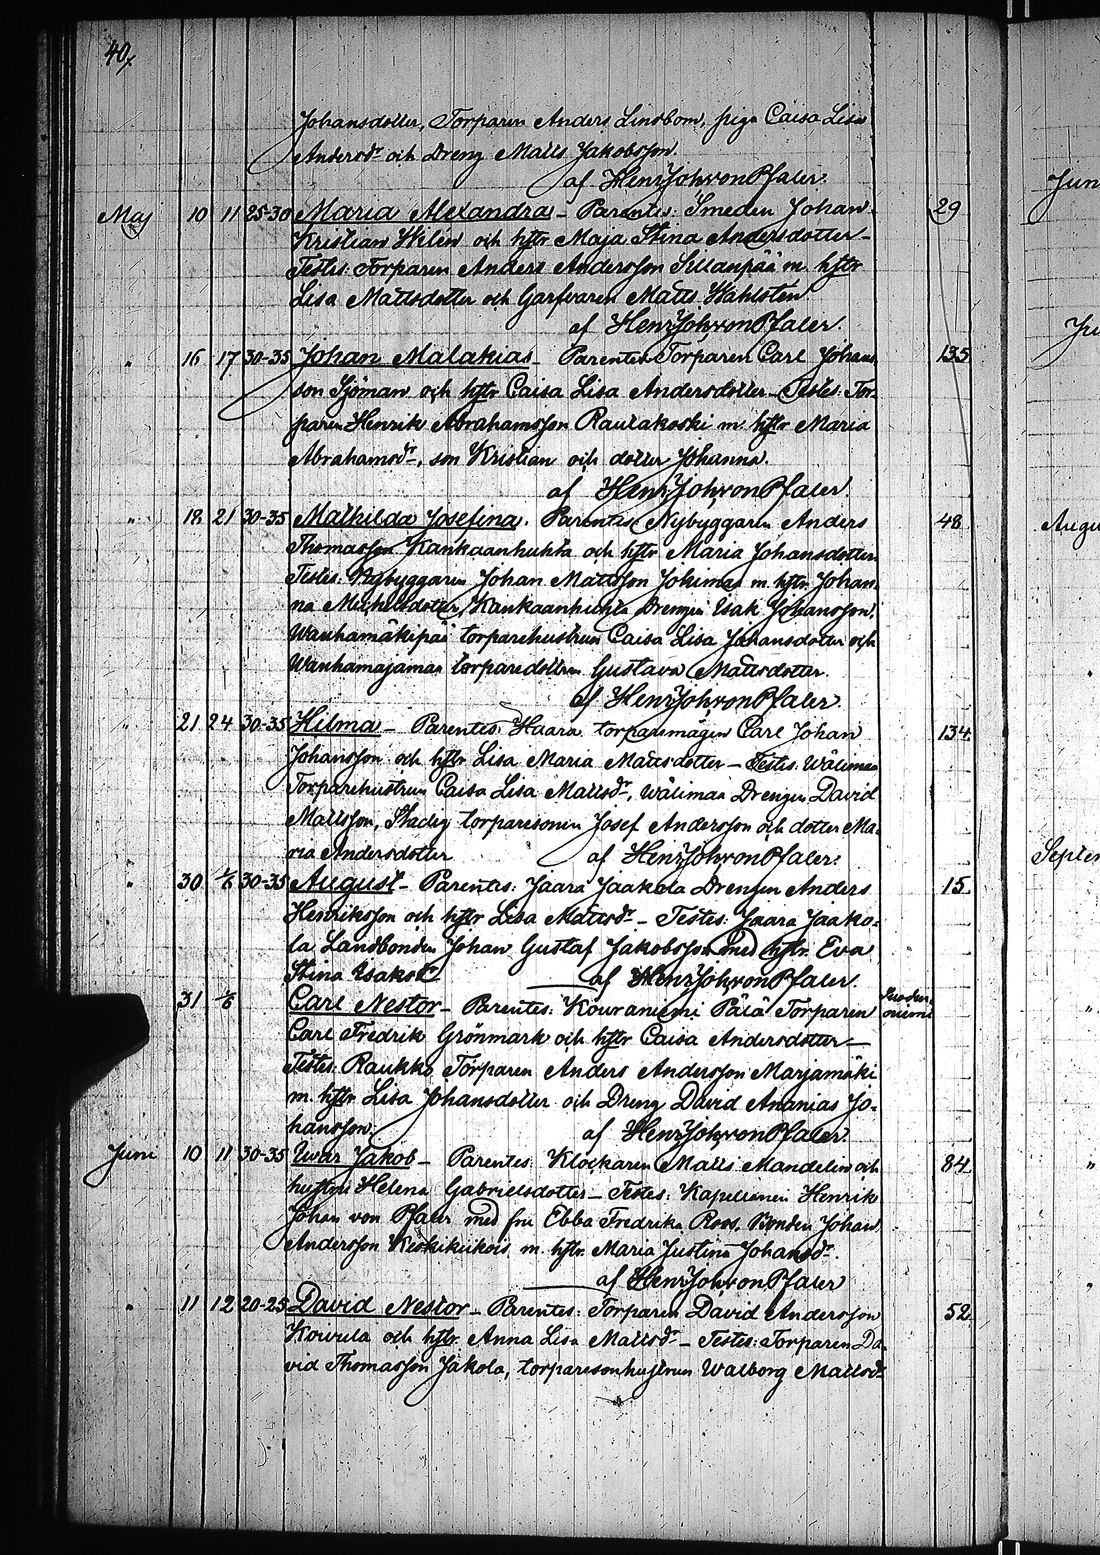 40
Johansdotter, Torparen Anders Lindbom, piga Caisa Lisa
Andersdr och Dreng Matts Jakobsson.
af HenrJohvonPfaler.
Maj 10 11 25-30 Maria Alexandra - Parentes: Smeden Johan 29
Kristian Wilén och hstr Maja Stina Andersdotter -
Testes: Torparen Anders Andersson Sillanpää m. hstr
Lisa Mattsdotter och Garfvaren Matts Wahlsten.
af HenrJohvonPfaler.
" 16 17 30-35 Johan Malakias - Parentes Torparen Carl Johans- 135
son Sjöman och hstr Caisa Lisa Andersdotter - Testes: Tor-
paren Henrik Abrahamsson Rautakoski m. hstr Maria
Abrahamsdr, son Kristian och dotter Johanna.
af HenrJohvonPfaler.
" 18 21 30-35 Mathilda Josefina. Parentes Nybyggaren Anders 48
Thomasson Kankaanhuhta och hstr Maria Johansdotter.
Testes. Nybyggaren Johan Mattsson Jokimaa m. hstr Johan-
na Michelsdotter, Kankaanhuhta Drengen Isak Johansson,
Wanhamäkipää torparehustrun Caisa Lisa Johansdotter och
Wanhamajamaa torparedottren Gustava Mattsdotter.
af HenrJohvonPfaler.
" 21 24 30-35 Hilma - Parentes: Haara torparemågen Carl Johan 134
Johansson och hstr Lisa Maria Mattsdotter - Testes. Wälimaa
Torparehustrun Caisa Lisa Mattsdr, Wälimaa Drengen David
Mattsson, Stadig torparesonen Josef Andersson och dotter Ma-
ria Andersdotter af HenrJohvonPfaler.
" 30 1/6 30-35 August - Parentes: Jaara Jaakola Drengen Anders 15
Henriksson och hstr Lisa Mattsdr - Testes: Jaara Jaako-
la Landbonden Johan Gustaf Jakobsson med hstr. Eva
Stina Isaksdr af HenrJohvonPfaler.
31 1/6 Carl Nestor - Parentes: Kouraniemi Pälä Torparen
Carl Fredrik Grönmark och hstr Caisa Andersdotter -
Testes: Raukko Torparen Anders Andersson Marjamäki
m. hstr Lisa Johansdotter och Dreng David Ananias Jo-
hansson. af HenrJohvonPfaler.
Juni 10 11 30-35 Iwar Jakob - Parentes: Klockaren Matts Mandelin och 84
hustrun Helena Gabrielsdotter - Testes: Kapellanen Henrik
Johan von Pfaler med fru Ebba Fredrika Roos, Bonden Johan
Andersson Keskikiikois m. hstr Maria Justina Johansdr.
af HenrJohvonPfaler
" 11 12 20-25 David Nestor - Parentes: Torparen David Andersson 52
Koivula och hstr. Anna Lisa Mattsdr - Testes: Torparen Da-
vid Thomasson Jakola, torparesonhustrun Walborg Mattsdr
Jun
Ju
Augu
Septem